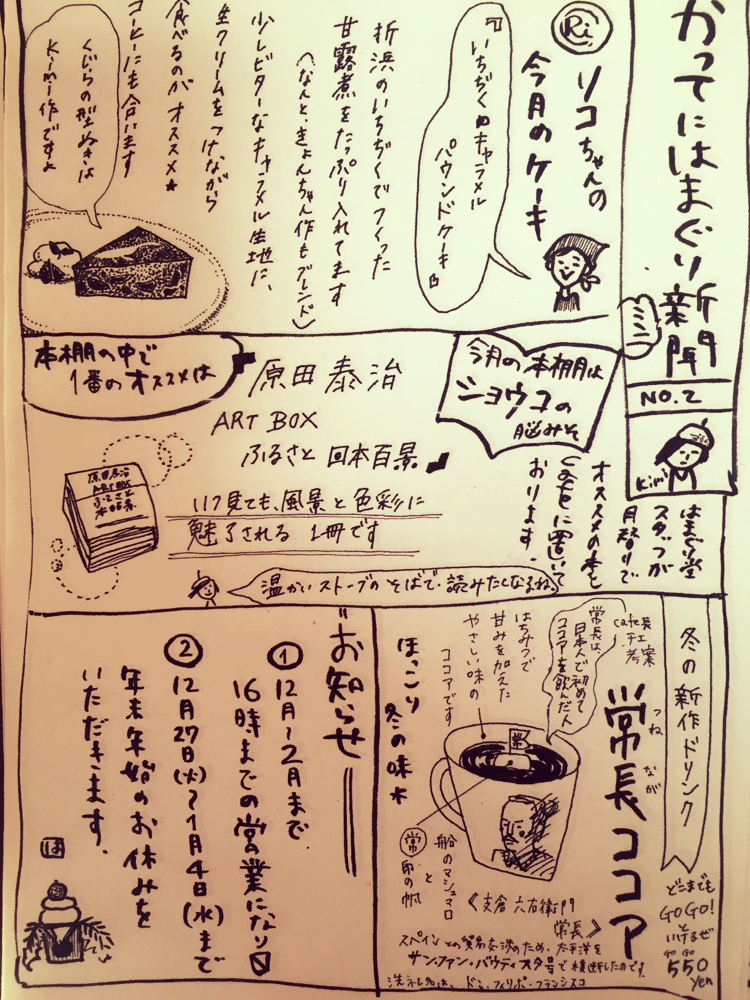 かってにはまぐり新聞
ミニ
NO.2
Kimi
はまぐり堂
スタッフが
月替りで
オススメの本を
Cafeに置いて
おります。
Ri
リコちゃんの
今月のケーキ
『いちぢくのキャラメル
パウンドケーキ』
折浜のいちぢくでつくった
甘露煮をたっぷり入れてます
(なんと、きょんちゃん作もブレンド)
少しビターなキャラメル生地に、
生クリームをつけながら
食べるのがオススメ★
コーヒーにも合います
くじらの型ぬきは
Kimi作ですよ
今月の本棚は
ショウコの
脳みそ
本棚の中で
1番のオススメは
原田泰治
ART BOX
ふるさと日本百景
原田泰治
ART BOX
ふるさと
日本百景
いつ見ても、風景と色彩に
魅了される 1冊です
温かいストーブのそばで、読みたくなるね。
冬の新作ドリンク
cafe長
考案
常長ココア
つねなが
常長は、
日本人で初めて
ココアを飲んだ人
はちみつで
甘みを加えた
やさしい味の
ココアです
ほっこり
冬の味★
常
船のマシュマロ
と
常
印の帆
《支倉 六右衛門
常長》
スペインとの貿易交渉のため、太平洋を
サン・ファン・バウティスタ号で横断したのです。
洗礼名は、ドン・フィリッポ・フランシスコ
どこまでも
GO GO!
いけるぜ
GO GO
550
yen
お知らせ
① 12月〜2月まで
16時までの営業になります
② 12月27日(火)〜1月4日(水)まで
年末年始のお休みを
いただきます。
は